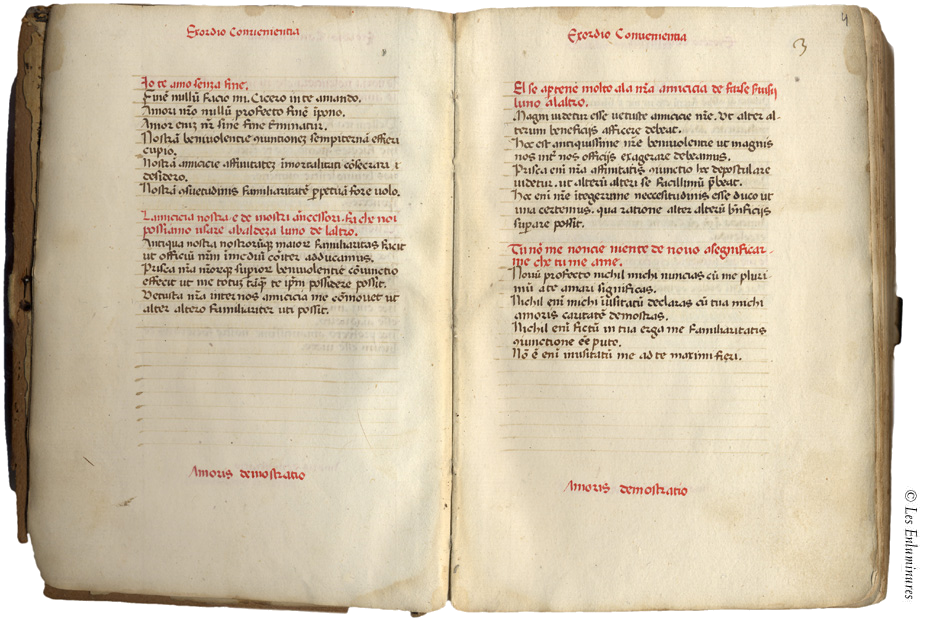 Exordio Conuenientia
Io te amo senza fine.
Finē nullū facio mi. Cicero in te amando.
Amori nrō nullū profecto finē īpono.
Amor eniz nr̄ sine fine terminatur.
Nostrā beniuolentie iunctionez sempiternā efficri
cupio.
Nostrā amicicie affinitatez īmortalitati cōsecrari
desidero.
Nostrā asuetudinis familiaritatē ppetuā fore uolo.
Lamicicia nostra e de inostri ancessori. fa che noi
possiamo usare abaldeza luno de laltro.
Antiqua nostra nostrorūqz maior familiaritas facit
ut officiū nrm̄ īmediū cōiter adducamus.
Prisca nrā mōrqz supior beniuolentie cōiunctio
effecit ut me totus tāqz te ipm̄ possidere possit.
Vetusta nrā inter nos amicicia me cōmouet ut
alter altero familiariter uti possit.
Amoris demostratio
4
Exordio Conuenientia
3
El se aptene molto ala nrā amicicia de farse seruisij
luno alaltro.
Magni uidetur esse uetuste amicicie nrē. Vt alter al-
terum beneficijs afficere debeat.
Hoc est antiquissime nrē beniuolentie ut magnis
nos int̄ nos officijs exagerare debeamus.
Prisca eni nrā affinitatis iunctio hoc depostulare
uidetur. ut alterū alteri se facillimū p̄beat.
Hoc eni nrē itegerrime neccesitudinis esse duco ut
una certemus. qua ratione alter alterū bn̄ficijs
supare possit.
Tu nō me noncie niente de nouo asegnificar-
me che tu me ame.
Nouū profecto nichil michi nuncias cū me pluri
mū a te amari significas.
Nichil eni michi iusitatū declaras cū tua michi
amoris caritatē demostras.
Nichil eni fictū in tua erga me familiaritatis
iunctione eē puto.
Nō ē eni inusitatū me ad te maximi fieri.
Amoris demostratio
© Les Enluminures